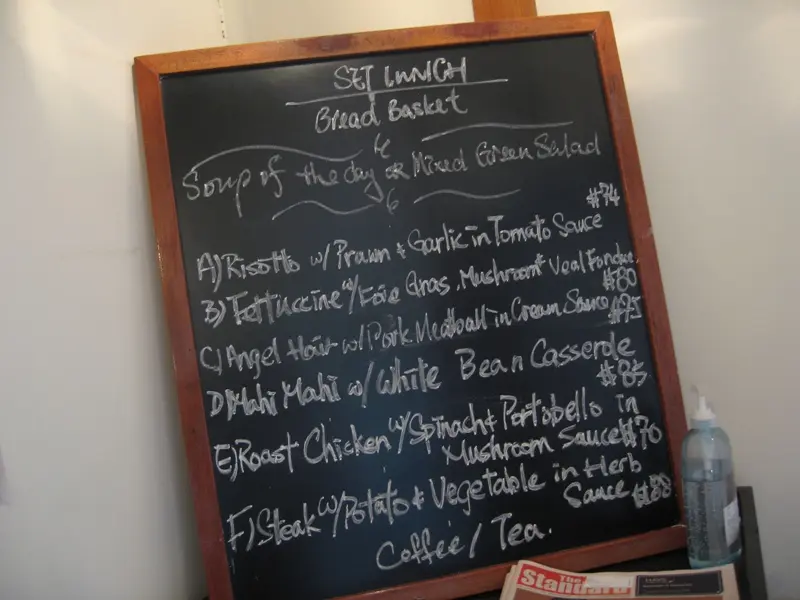 SET LUNCH
Bread Basket
Soup of the day or Mixed Green Salad
A) Risotto w/ Prawn & Garlic in Tomato Sauce $74
B) Fettuccine w/ Foie Gras, Mushroom & Veal Fondue $80
C) Angel Hair w/ Pork Meatball in Cream Sauce $75
D) Mahi Mahi w/ White Bean Casserole $85
E) Roast Chicken w/ Spinach & Portobello in
Mushroom Sauce $70
F) Steak w/ Potato & Vegetable in Herb
Sauce $88
Coffee / Tea.
The
Standard